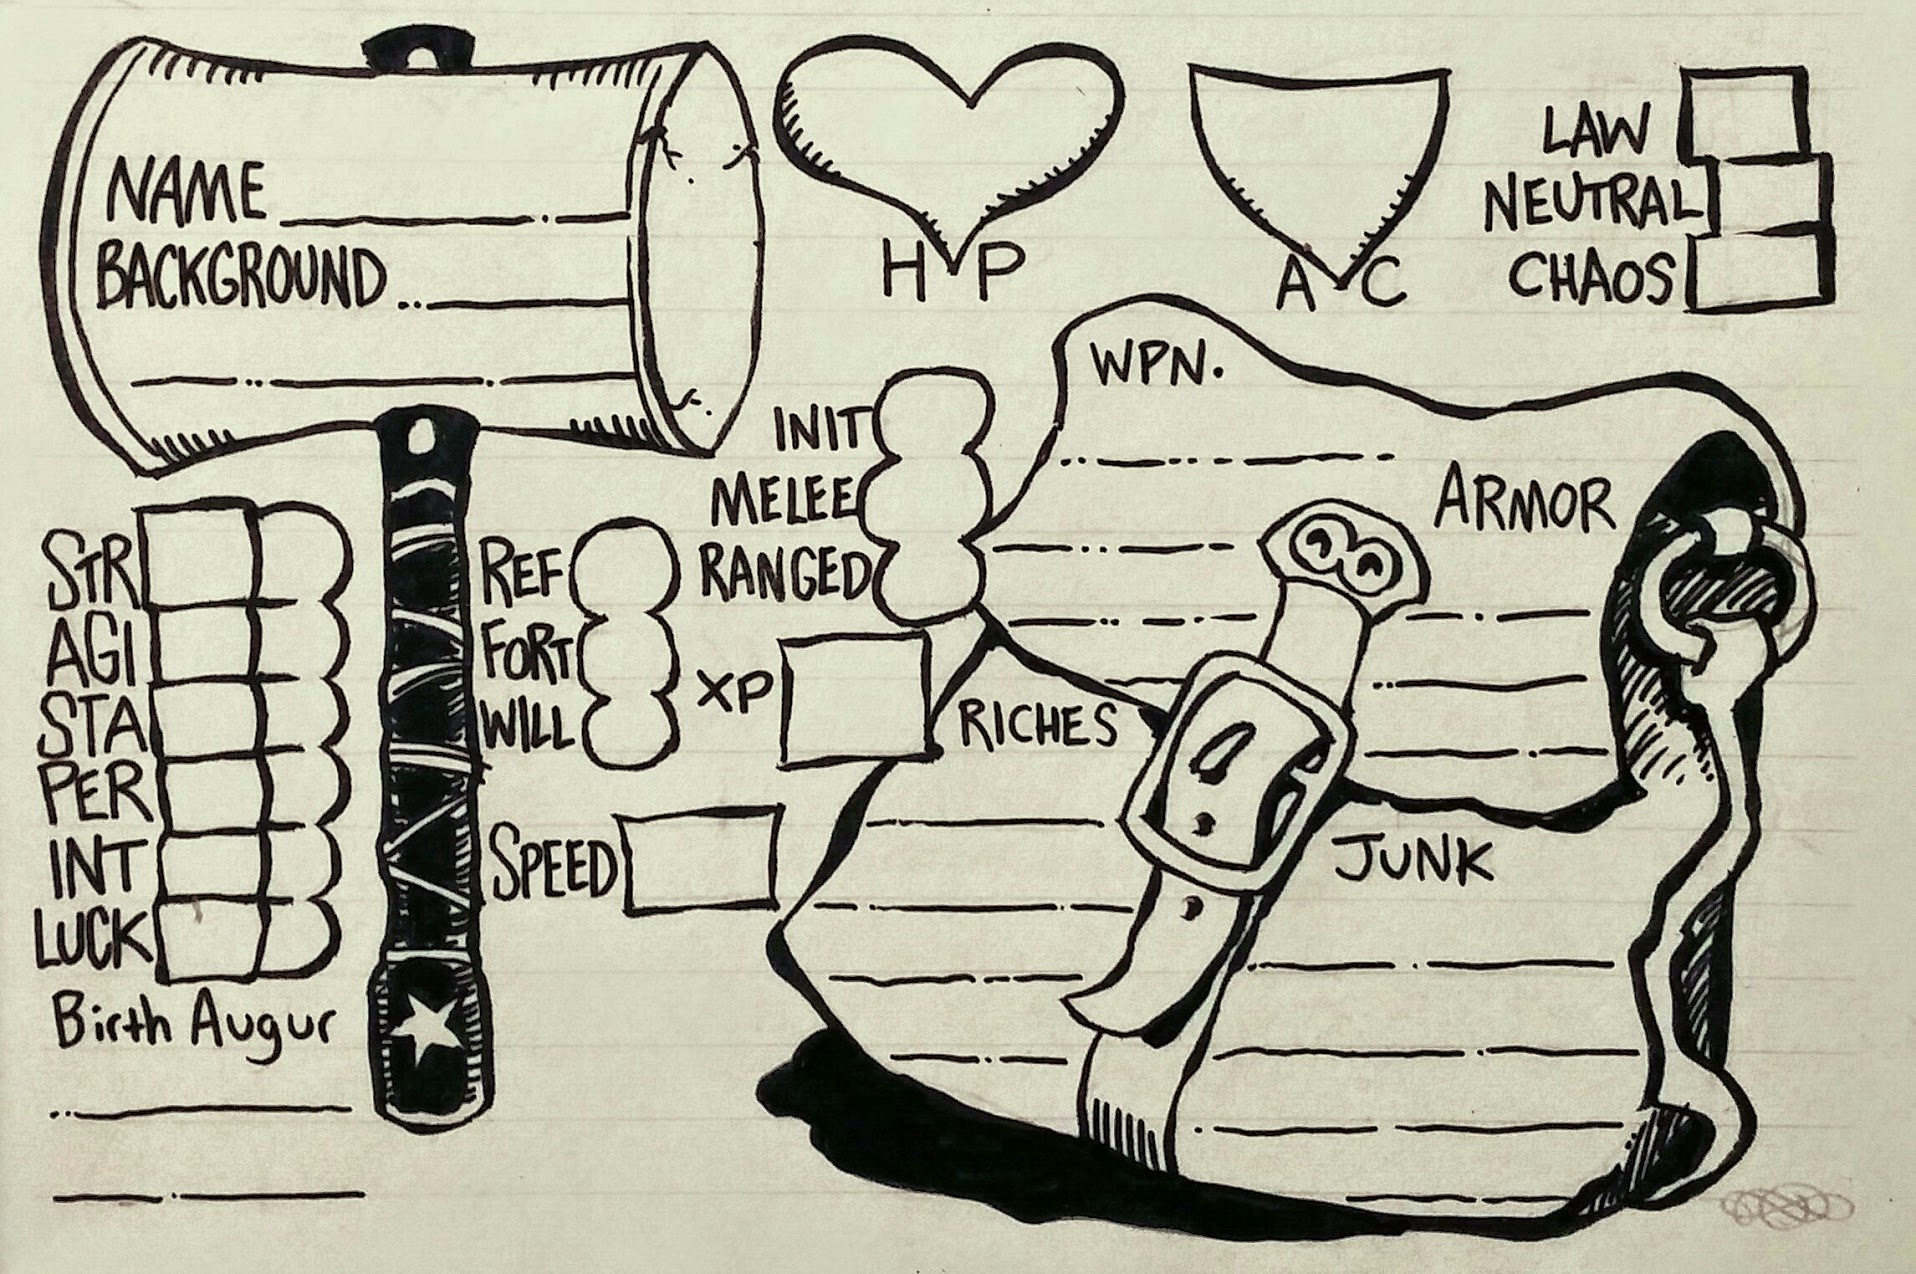 NAME
BACKGROUND
HP
AC
LAW
NEUTRAL
CHAOS
STR
AGI
STA
PER
INT
LUCK
Birth Augur
REF
FORT
WILL
INIT
MELEE
RANGED
XP
SPEED
WPN.
ARMOR
RICHES
JUNK